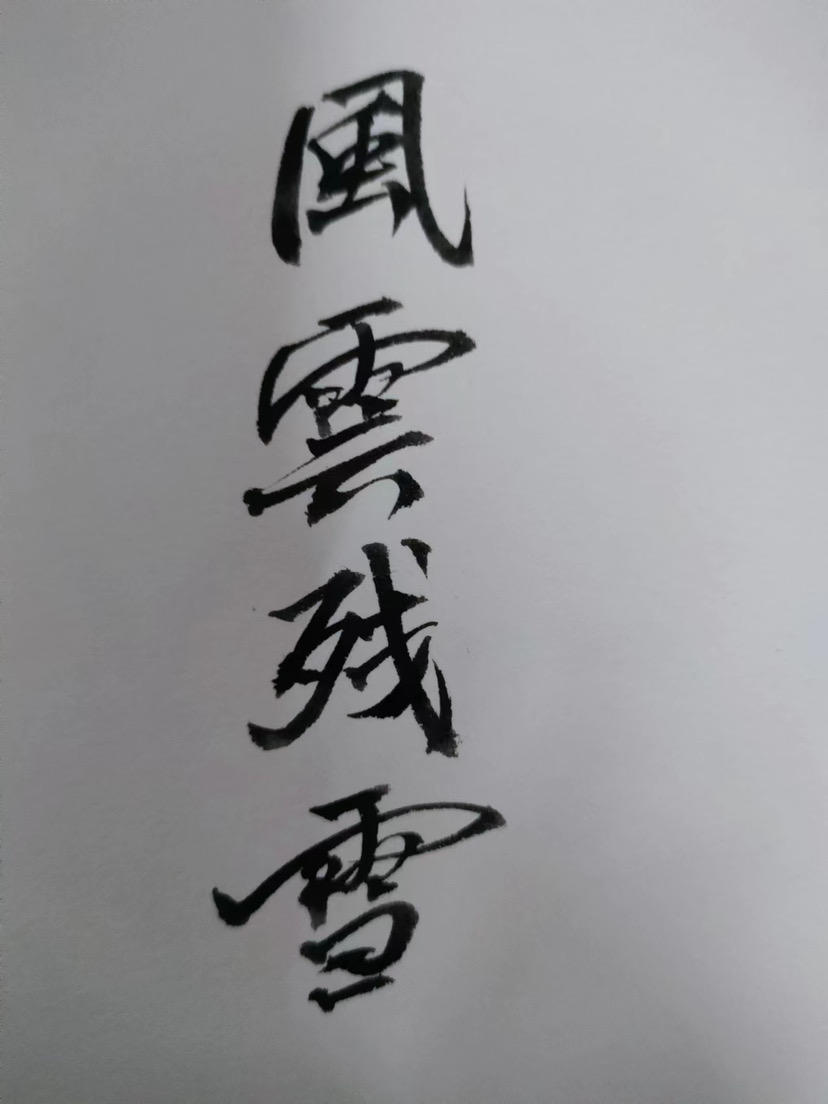 風雲残雪